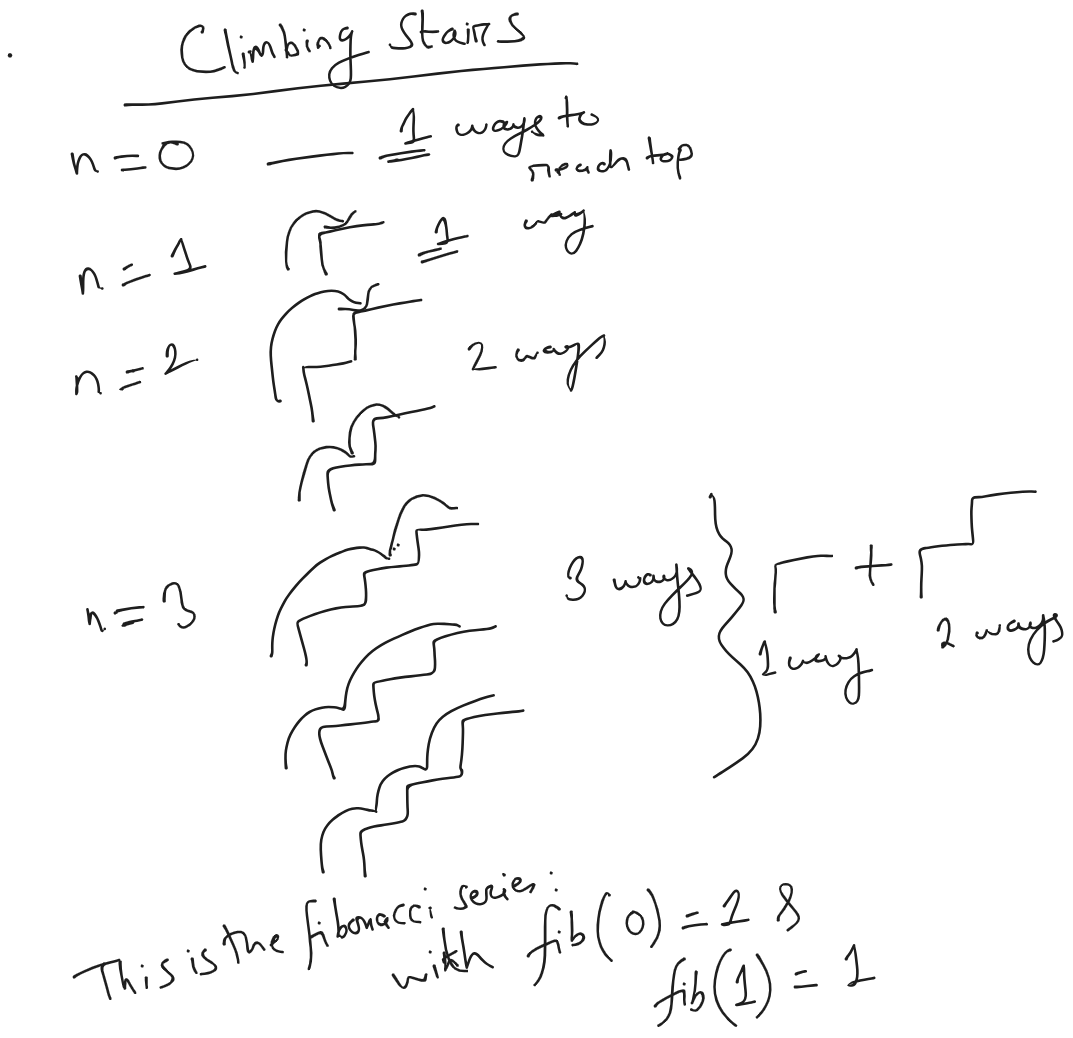 Climbing Stairs
n = 0 1 ways to
reach top
n = 1 1 way
n = 2 2 ways
n = 3 3 ways
+
1 way 2 ways
This is the fibonacci series:
with fib(0) = 1 &
fib(1) = 1